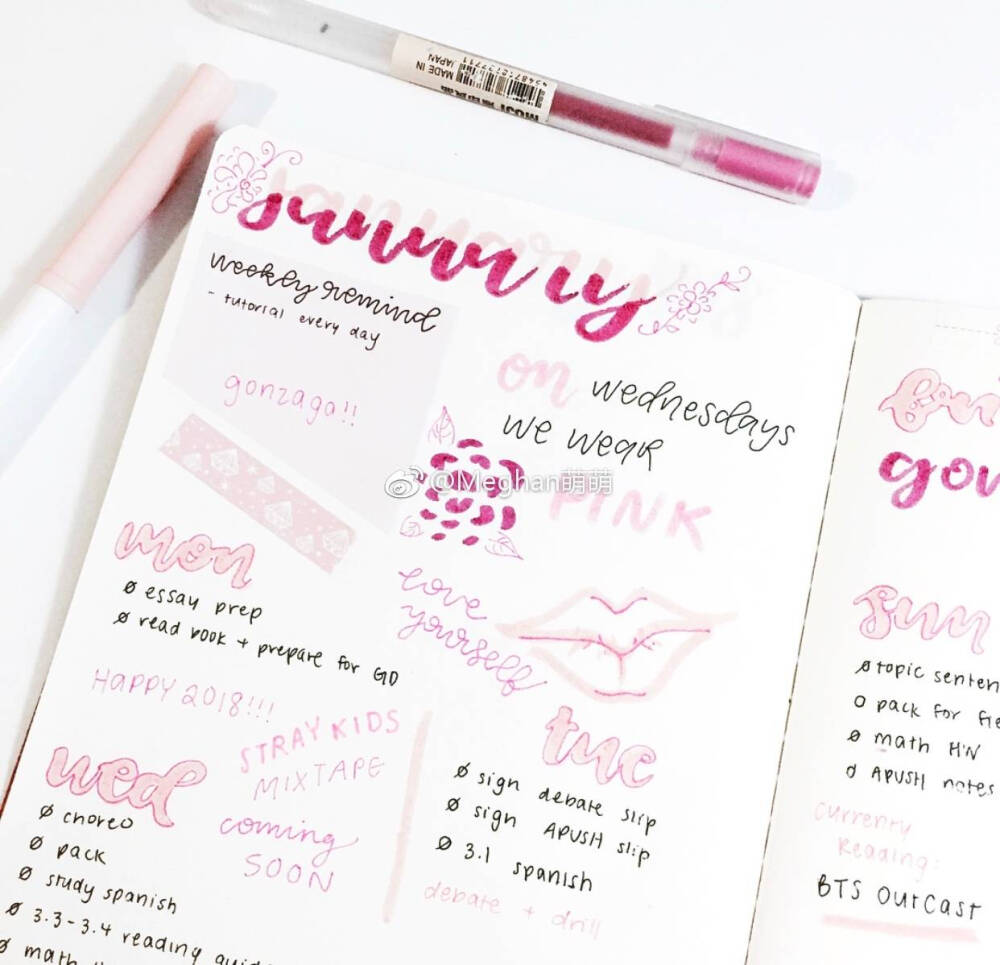 MADE IN
JAPAN
MUJI
january
weekly remind
- tutorial every day
gonzaga!!
on wednesdays
we wear
PINK
@Meghan萌萌
love
yourself
mon
ø essay prep
ø read book + prepare for GD
HAPPY 2018!!!
STRAY KIDS
MIXTAPE
coming
SOON
tue
ø sign debate slip
ø sign APUSH slip
ø 3.1 spanish
debate + drill
wed
ø choreo
ø pack
ø study spanish
ø 3.3-3.4 reading
ø math
sun
ø topic senten
o pack for fie
ø math HN
APUSH notes
currently
Reading:
BTS Outcast